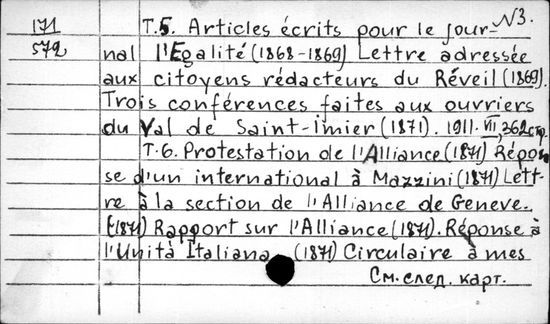 N3.
171 T.5. Articles écrits pour le jour-
572 nal l'Egalité (1868-1869) Lettre adressée
aux citoyens rédacteurs du Réveil (1869).
Trois conférences faites aux ouvriers
du Val de Saint-imier (1871). 1911. VII, 362 стр.
T.6. Protestation de l'Alliance (1871) Répon
se d'un international à Mazzini (1871) Lett-
re à la section de l'Alliance de Geneve.
(1871) Rapport sur l'Alliance (1871). Réponse à
l'Unità Italiana (1871) Circulaire à mes
См. след. карт.